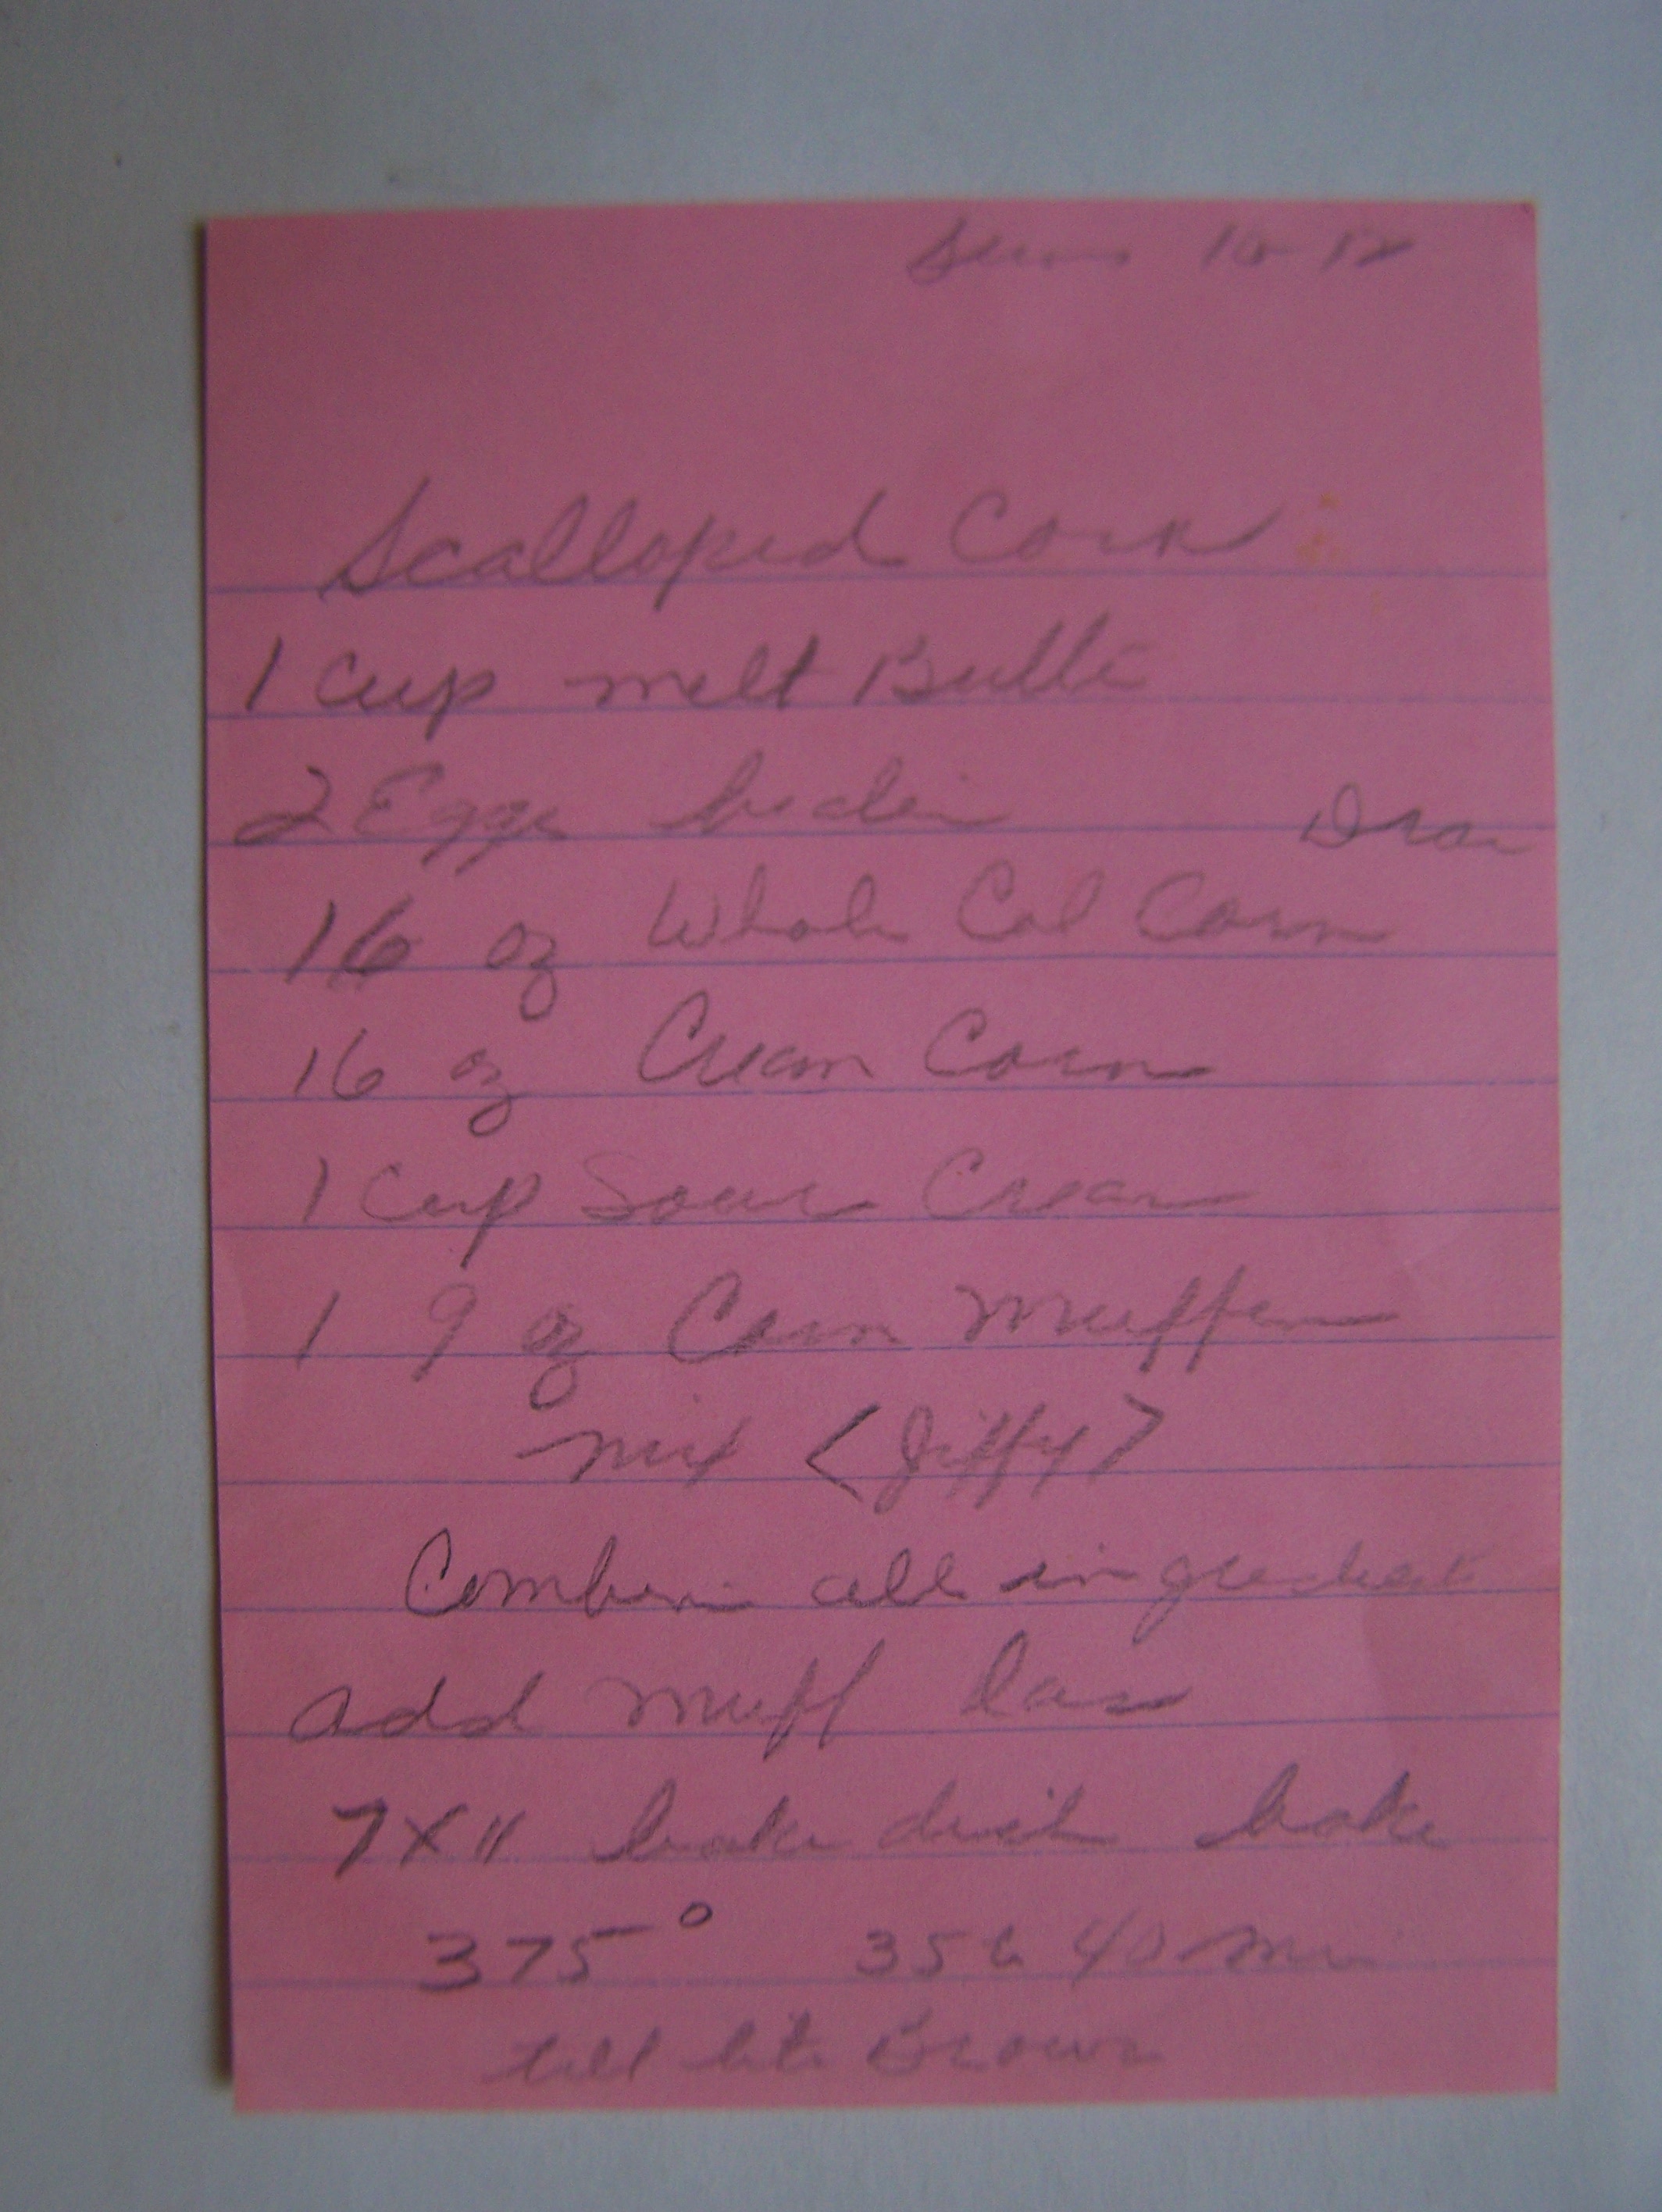 Serves 10-12
Scalloped Corn
1 Cup melt Butte
2 Eggs beaten
Drain
16 oz Whole Corn
16 oz Cream Corn
1 Cup Sour Cream
1 9 oz Corn Muffin
mix <Jiffy>
Combine all ingredients
add muff last
7X11 bake dish bake
375° 35 to 40 min
till lite Brown